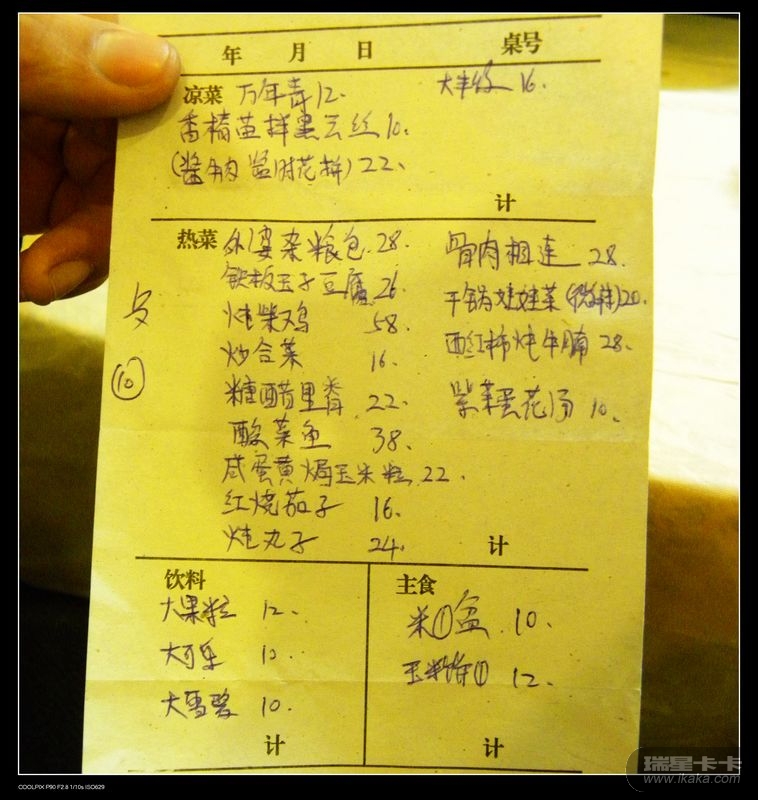 年 月 日 桌号
凉菜 万年青12. 大丰收 16.
香椿苗拌黑云丝10.
(酱牛肉 22.
计
热菜 外婆杂粮包.28. 骨肉相连 28.
铁板玉子豆腐 26 干锅娃娃菜 20.
炖柴鸡 58. 西红柿炖牛腩 28.
炒合菜 16. 紫菜蛋花汤 10.
糖醋里脊 22.
酸菜鱼 38.
咸蛋黄焗玉米粒 22.
红烧茄子 16.
炖丸子 24. 计
10
饮料
大果粒 12.
大可乐 10.
大雪碧 10.
计
主食
米①盆 10.
玉米饼① 12.
计
COOLPIX P90 F2.8 1/10s ISO629
瑞星卡卡
www.ikaka.com